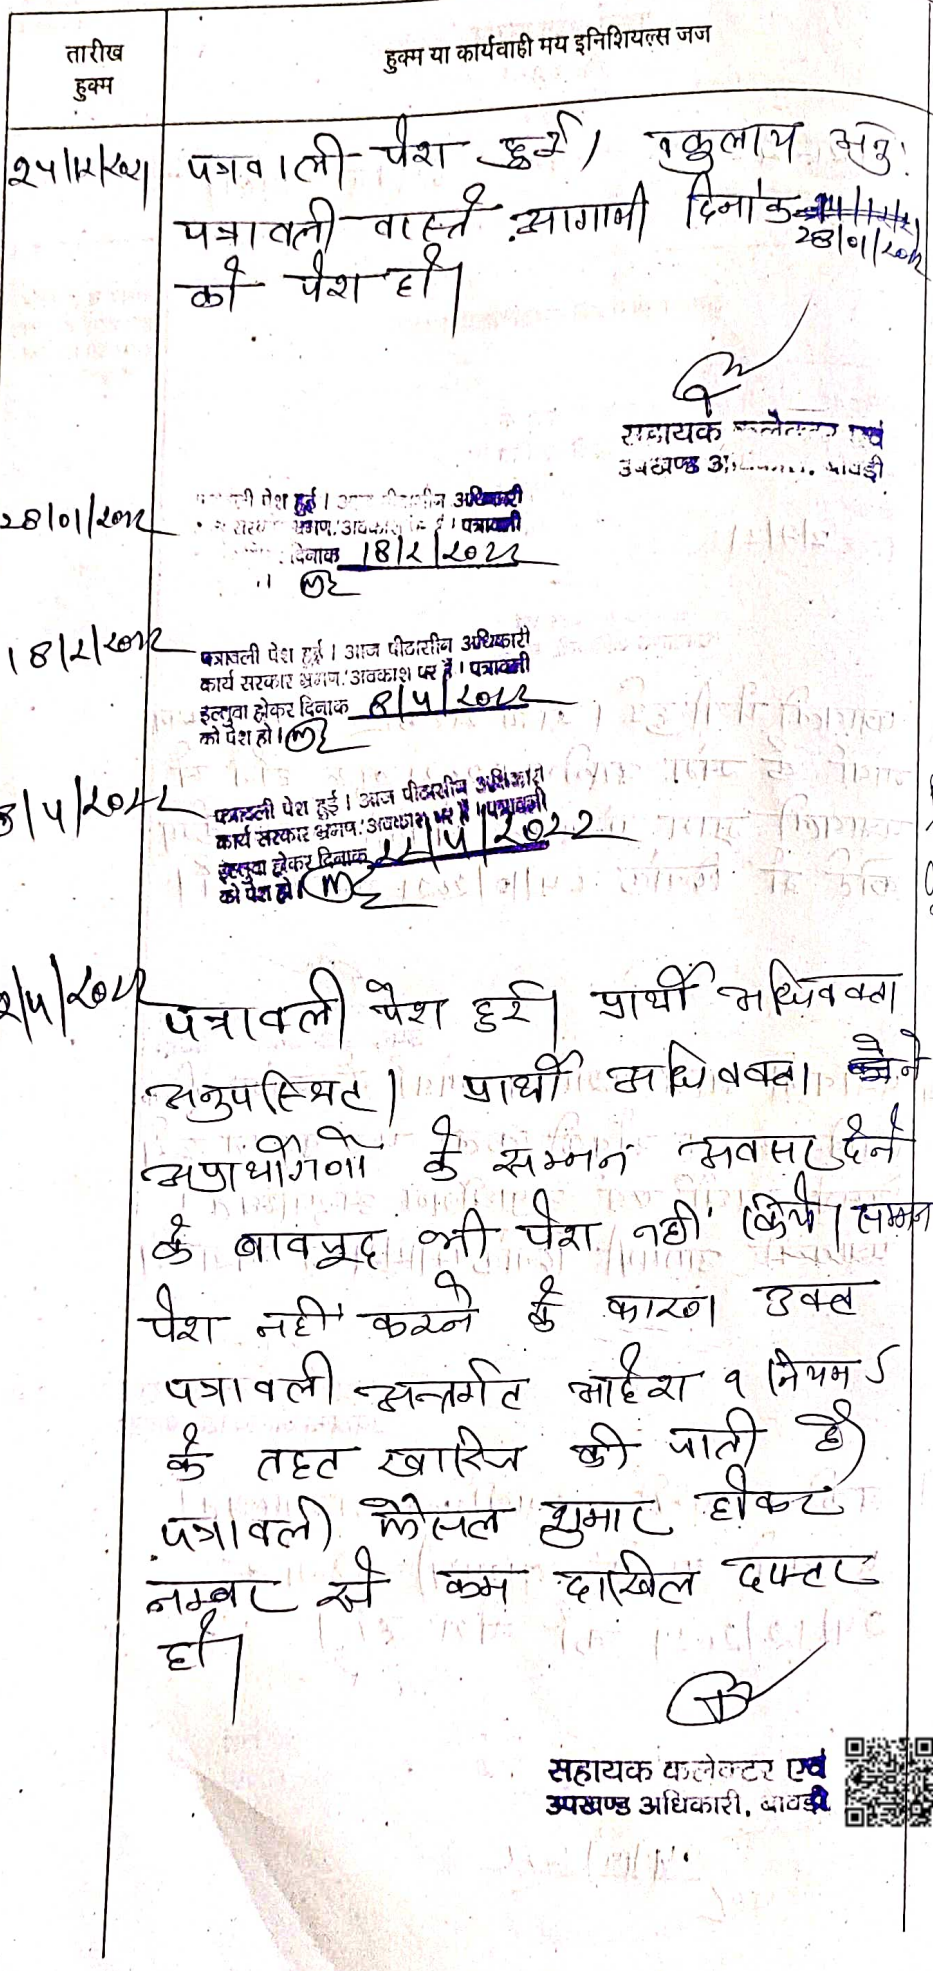 तारीख
हुक्म
हुक्म या कार्यवाही मय इनिशियल्स जज
पत्रवाली पेश हुई। वकुलाय अनु.
पत्रावली वास्ते आगामी दिनांक
28/01/2022
को पेश हो।
सहायक कलेक्टर एवं
उपखण्ड अधिकारी, बावड़ी
28/01/2022
पेश हुई। आज पीठासीन अधिकारी
भ्रमण/अवकाश पत्रावली
दिनांक 18/2/2022
18/2/2022
पत्रावली पेश हुई। आज पीठासीन अधिकारी
कार्य सरकार भ्रमण/अवकाश पर है। पत्रावली
इल्तुवा होकर दिनांक 8/4/2022
को पेश हो।
8/4/2022
पत्रावली पेश हुई। आज पीठासीन अधिकारी
कार्य सरकार भ्रमण/अवकाश पर है। पत्रावली
इल्तुवा होकर दिनांक
को पेश हो।
पत्रावली पेश हुई। प्रार्थी अधिवक्ता
अनुपस्थित। प्रार्थी अधिवक्ता ने
अप्रार्थीगणों के सम्मन अवसर देने
के बावजूद भी पेश नहीं किये। सम्मन
पेश नहीं करने के कारण उक्त
पत्रावली अन्तर्गत आदेश 9 नियम 5
के तहत खारिज की जाती है।
पत्रावली फैसल शुमार होकर
नम्बर से कम दाखिल दफ्तर
हो।
सहायक कलेक्टर एवं
उपखण्ड अधिकारी, बावड़ी